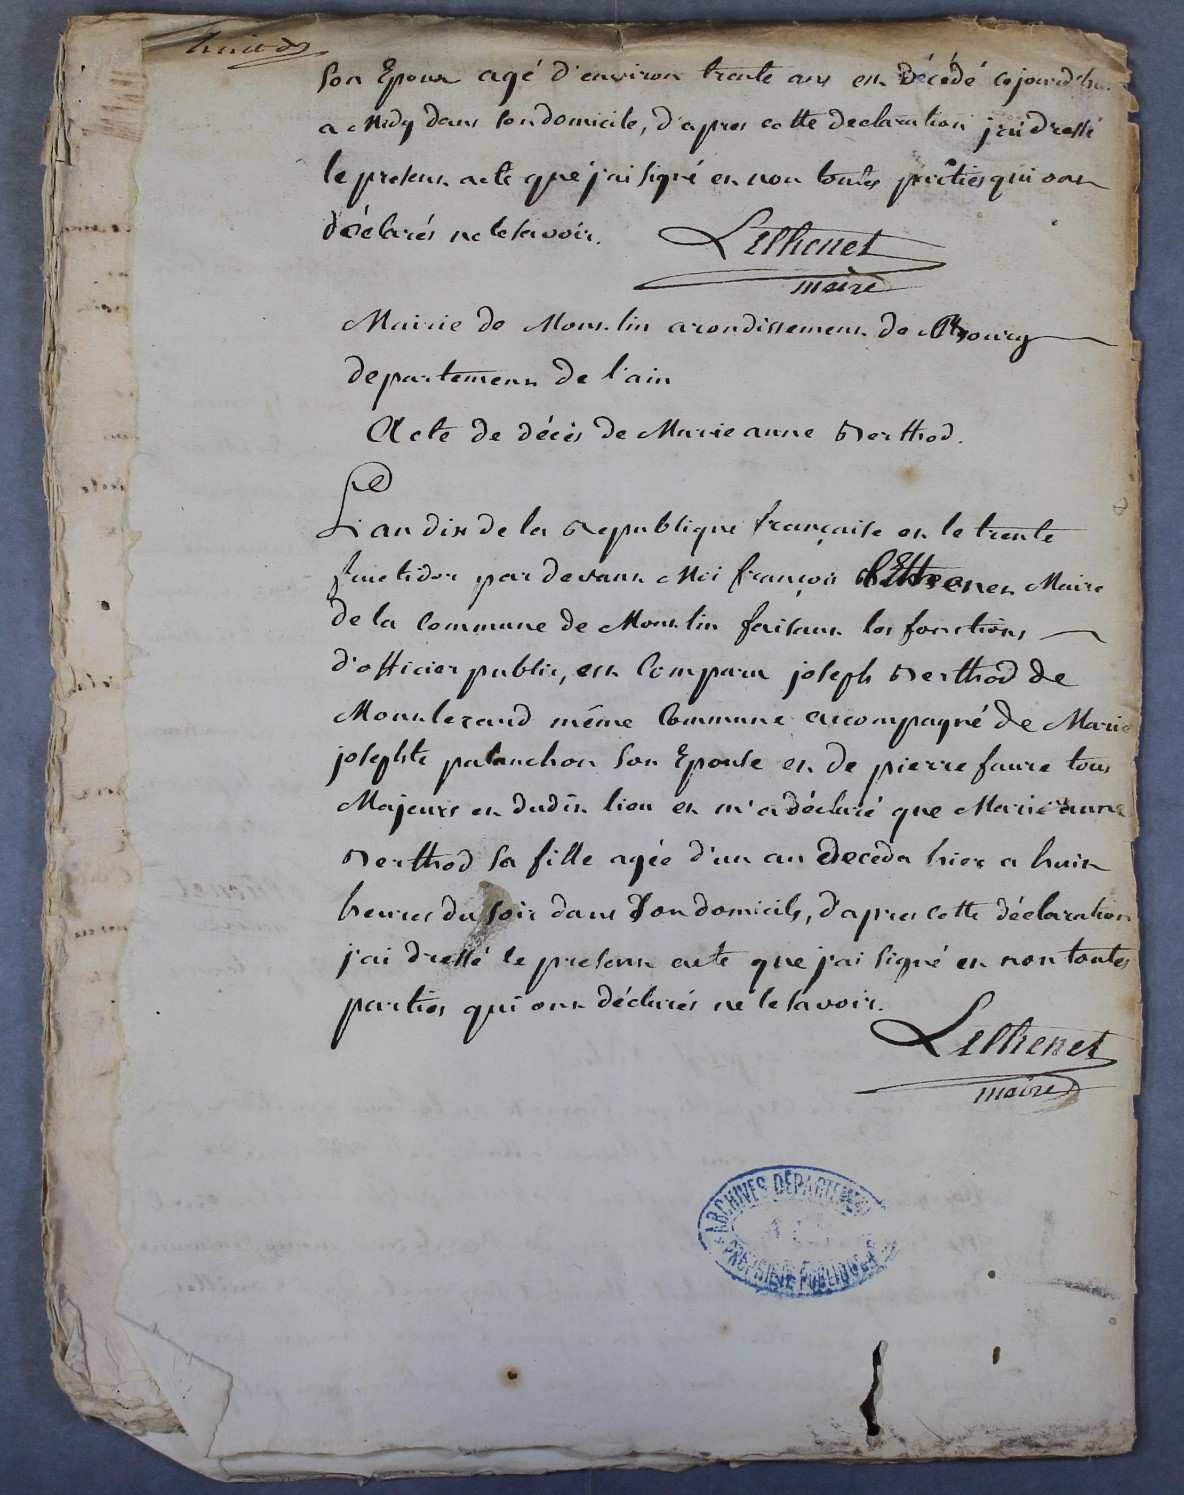 huit
Son Epoux agé d'environ trente ans est décédé cejourd'hui
a Midy dans son domicile, d'apres cette declaration j'ai dressé
le present acte que j'ai signé et non toutes parties qui ont
déclarés ne le savoir.
Lethenet
maire
Mairie de Montlin arondissement de Bourg
departement de l'ain
Acte de décès de Marie anne Berthod.
L'an dix de la Republique française et le trente
fructidor par devant Moi françois Lethenet Maire
de la Commune de Montlin faisant les fonctions
d'officier public, est Comparu joseph Berthod de
même Commune accompagné de Marie
josephte palanchon son Epouse et de pierre faure tous
Majeurs et dudit lieu et m'a déclaré que Marie anne
Berthod sa fille agée d'un an Deceda hier a huit
heures du soir dans son domicile, d'apres cette déclaration
j'ai dressé le present acte que j'ai signé et non toutes
parties qui ont déclarés ne le savoir.
Lethenet
maire
ARCHIVES DÉPARTEMENT
PROPRIÉTÉ PUBLIQUE